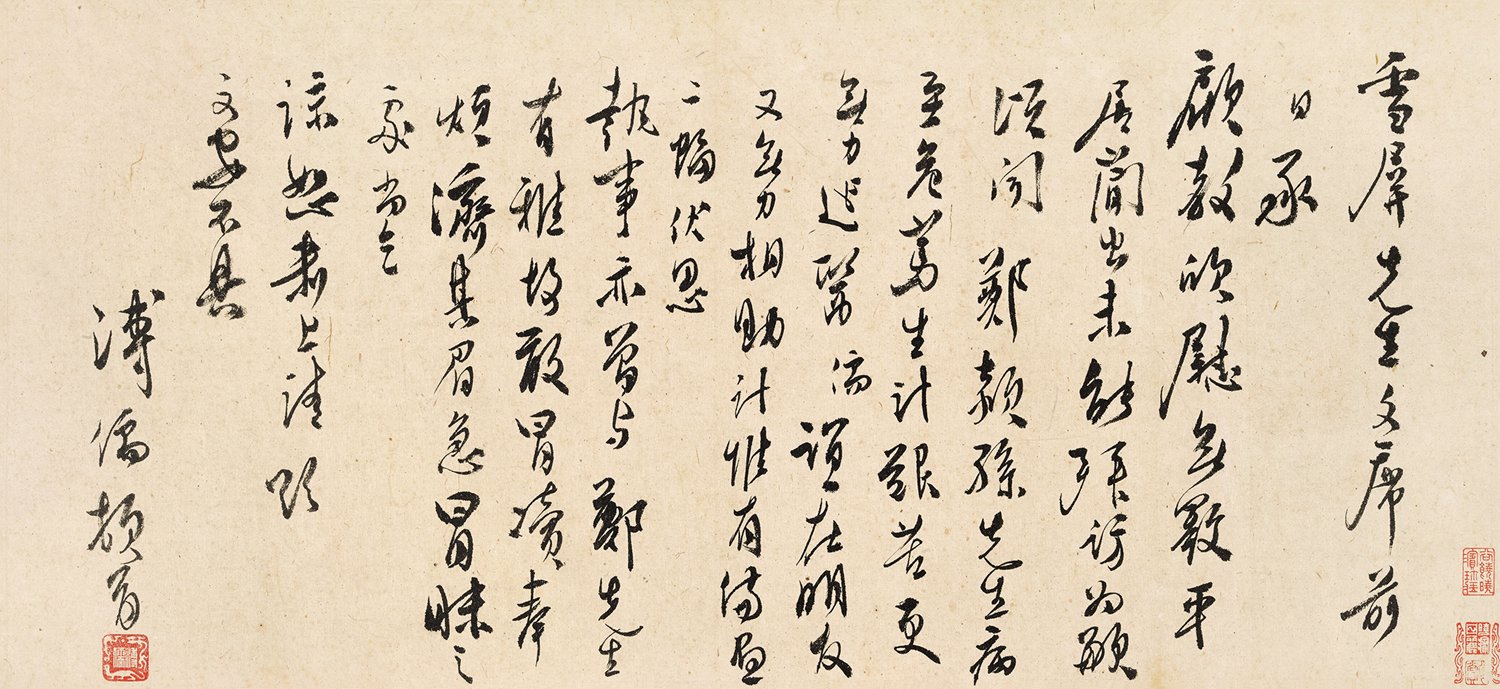 雪屏先生文席前
日承
顧教欣慰無斁平
居簡出未能拜訪為歉
頃聞 鄭穎孫先生病
至危篤生計艱苦更
無力延醫儒誼在朋友
又無力相助計惟有備畫
二幅伏思
執事亦嘗與 鄭先生
有雅故敢冒瀆奉
煩濟其眉急冒昧之
處尚乞
諒恕肅上請頌
文安不具
溥儒頓首